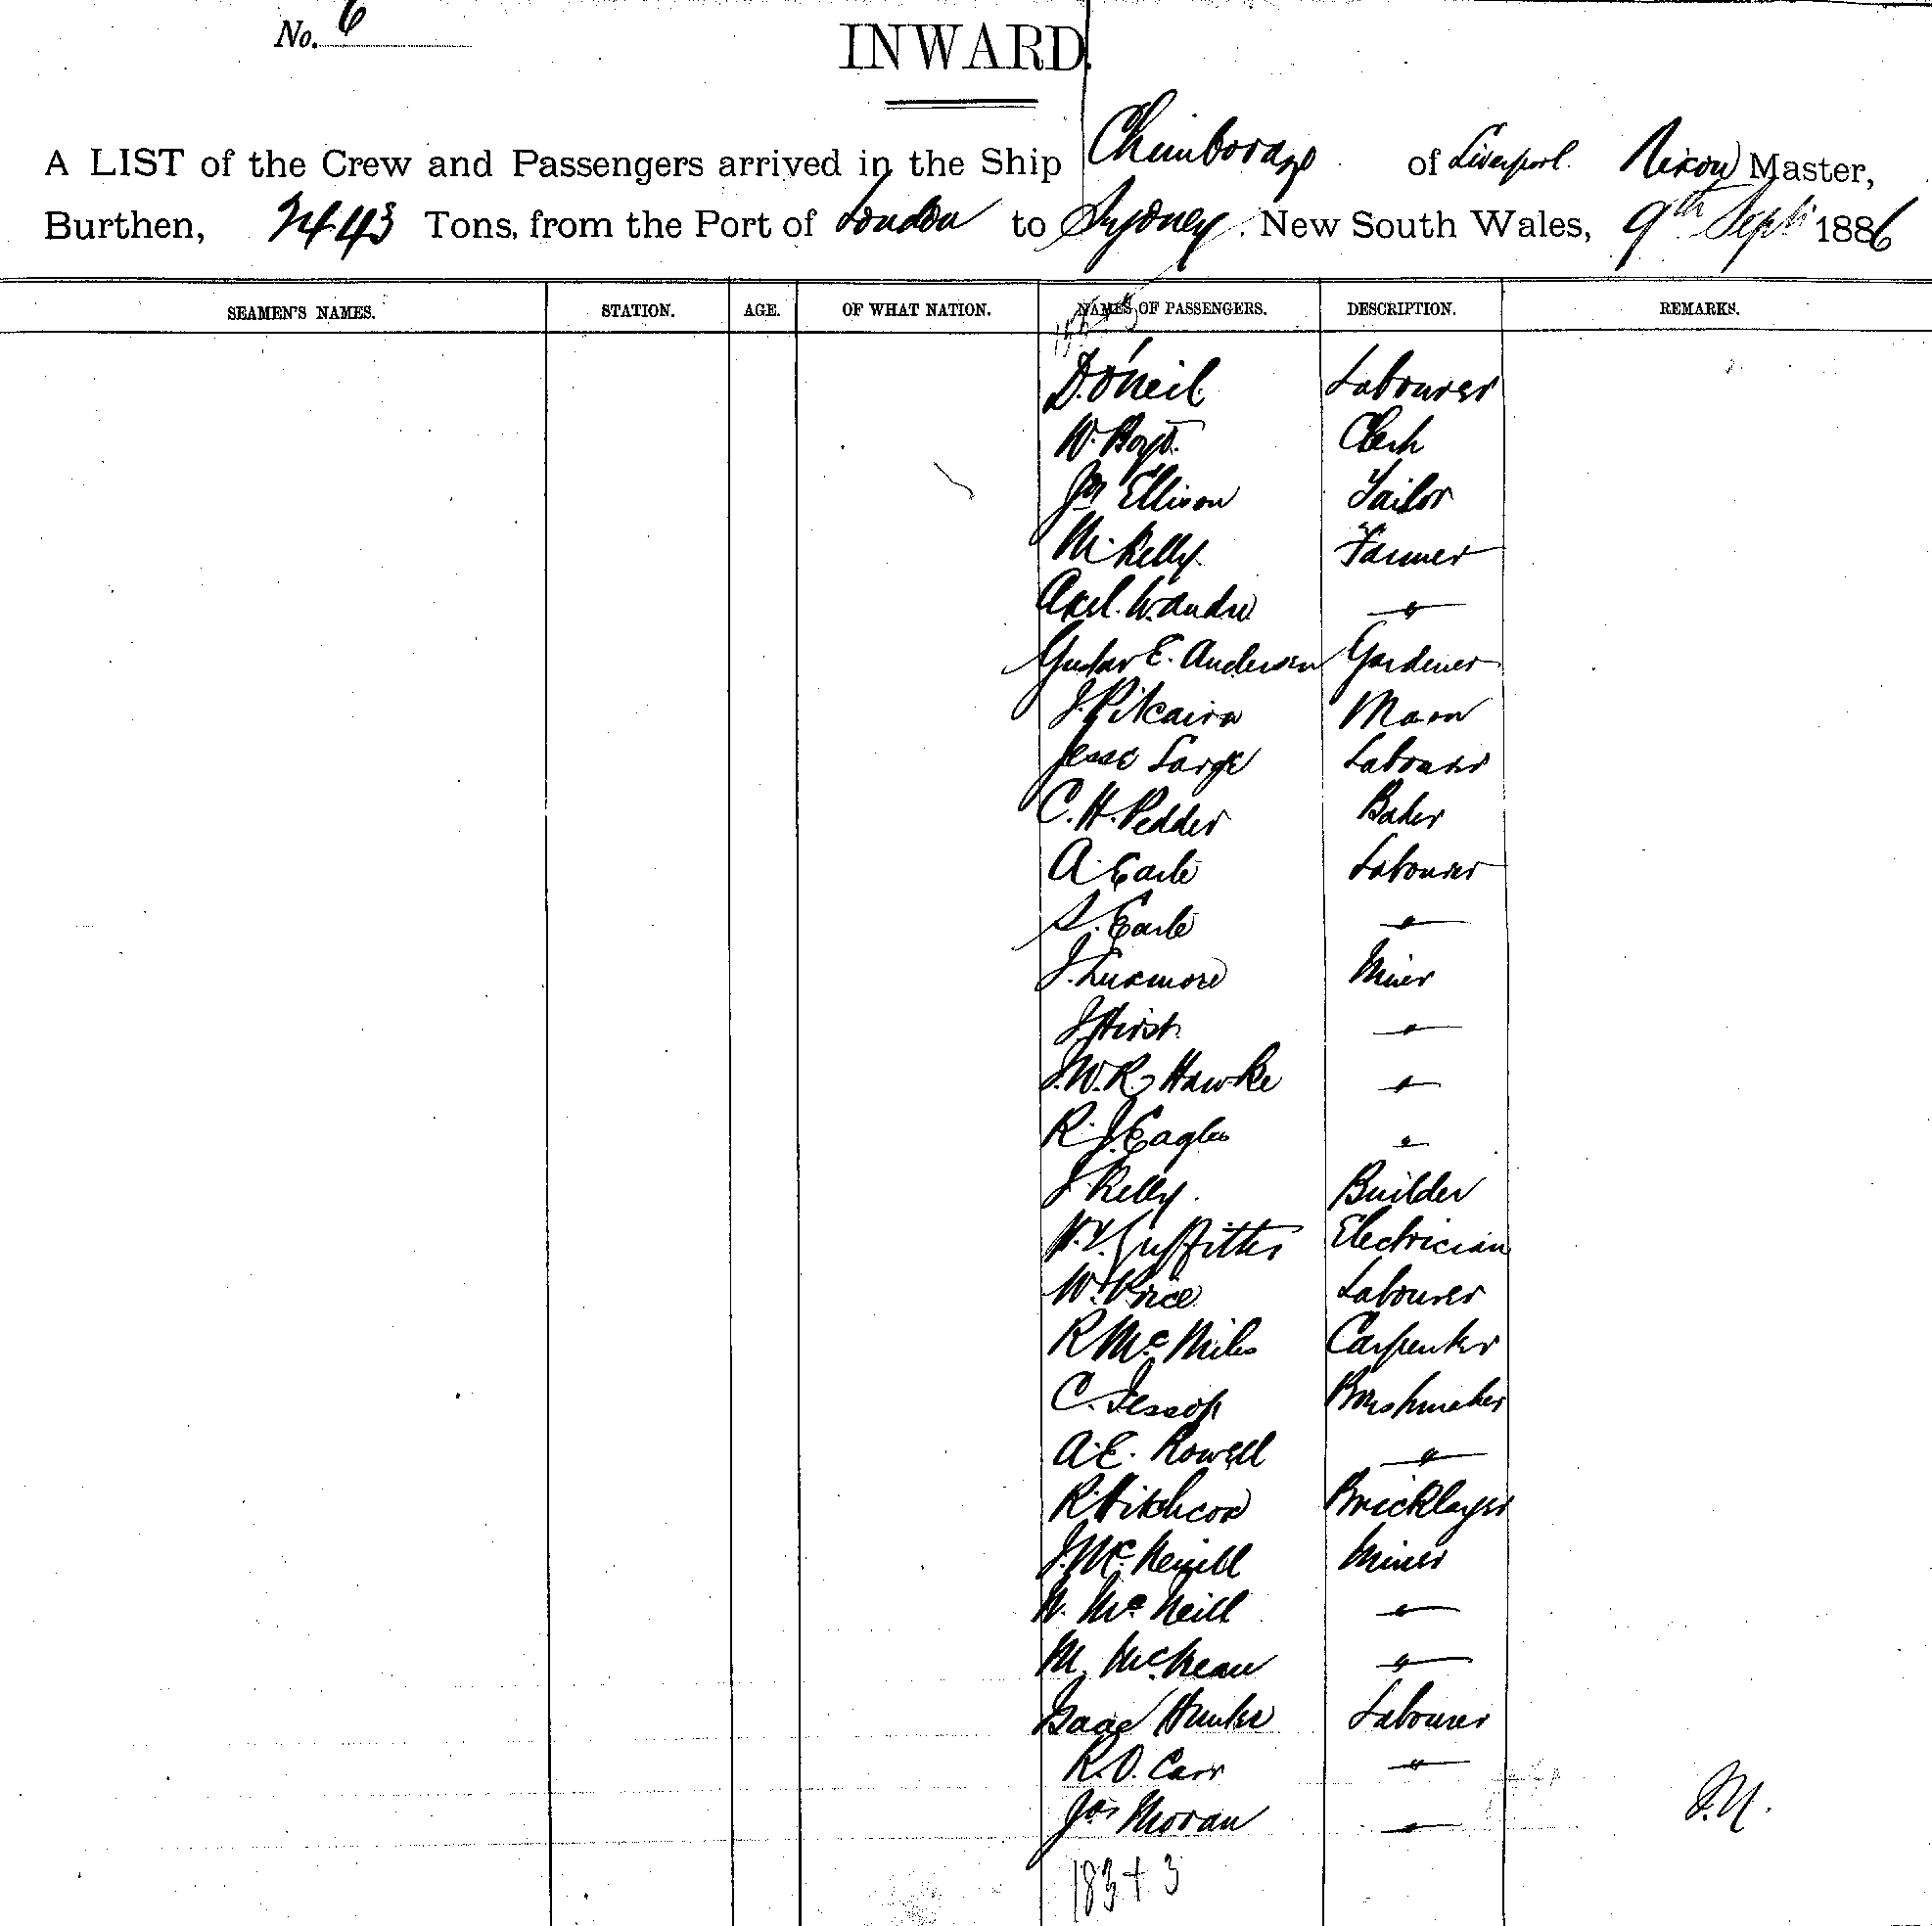 No. 6
INWARD.
A LIST of the Crew and Passengers arrived in the Ship Chimborazo of Liverpool. Nixon Master,
Burthen, 2443 Tons, from the Port of London to Sydney. New South Wales, 9th Sept 1886
SEAMEN'S NAMES. STATION. AGE. OF WHAT NATION. NAMES OF PASSENGERS. DESCRIPTION. REMARKS.
D. O'Neil Labourer
W. Boyd. Clerk
Jas Ellison Tailor
M. Kelly. Farmer
Axel. "
Gustav E. Andersen Gardener
J. Pitcairn Mason
Jesse Large Labourer
C. H. Pedder Baker
A. Earle Labourer
S. Earle "
J. Luxmore Miner
J Hirst. "
J. W. R. Hawke "
R. J. Eagles "
J Kelly. Builder
Griffiths Electrician
W. Price Labourer
R McMiles Carpenter
C. Jessop Brushmaker
A. E. Rowell "
R. Hitchcox Bricklayer
J. Mc Miner
N. McNeill "
M. McKean "
Isaac Hunter Labourer
R. O. Carr "
Jas Moran "
J.M.
183 + 3